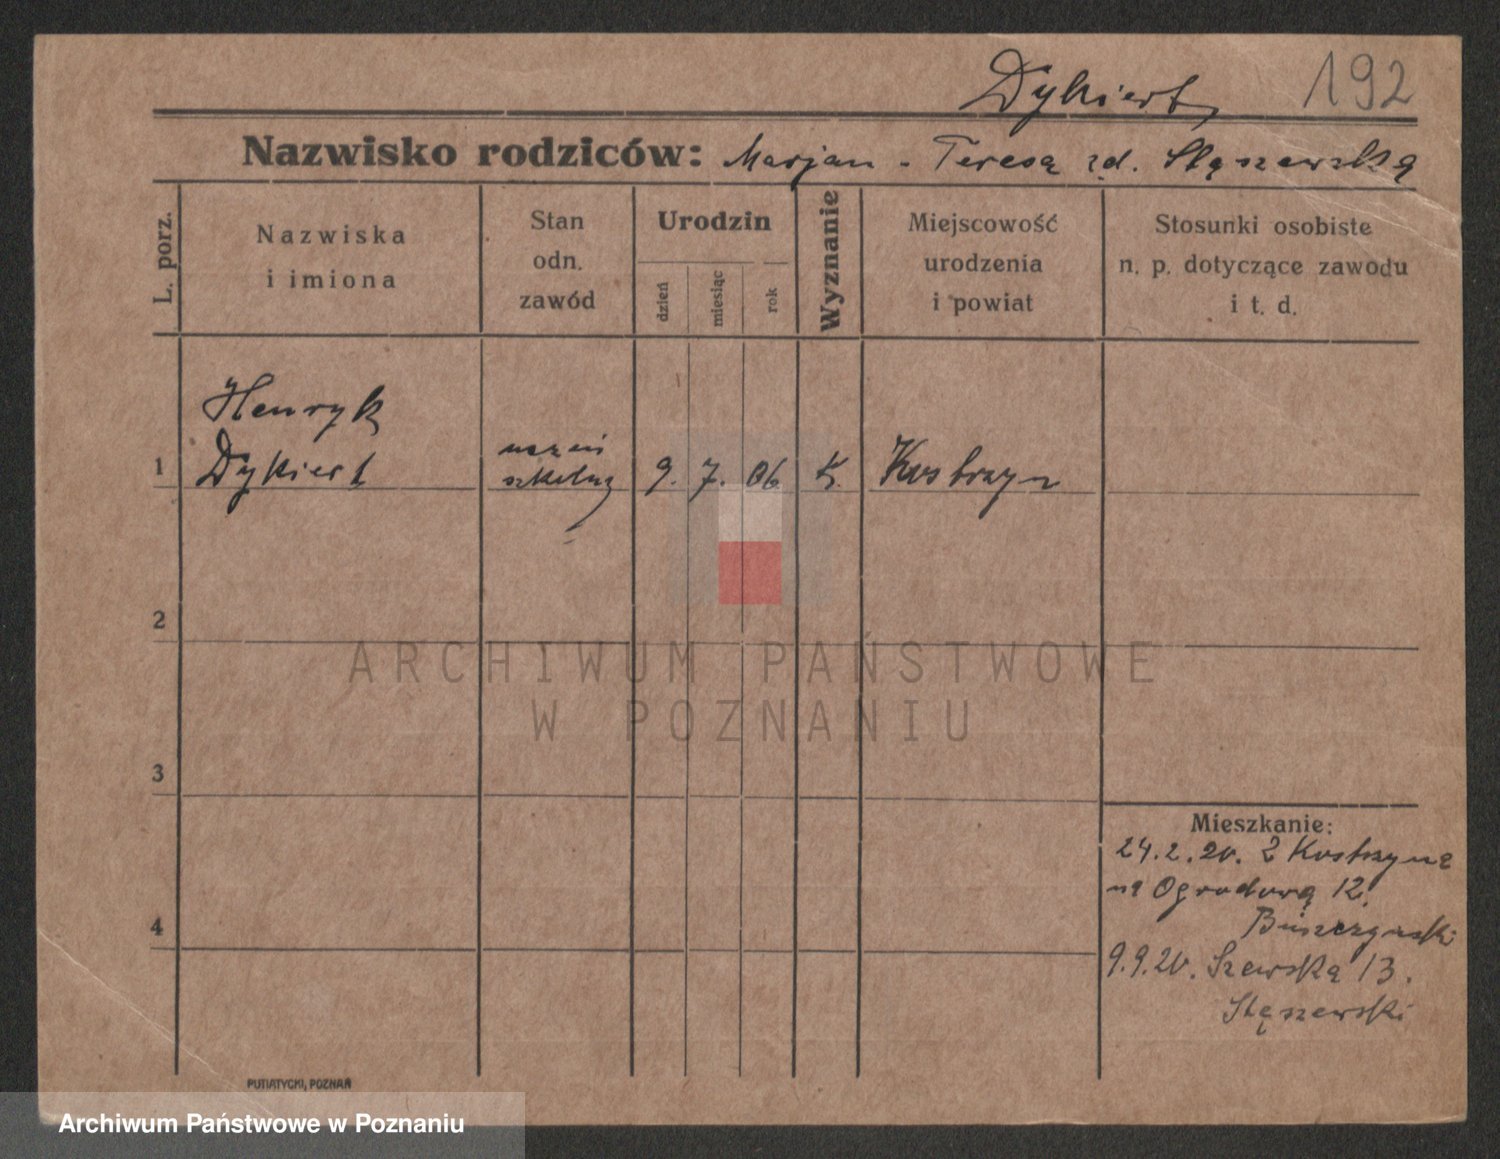 Dykiert, 192
Nazwisko rodziców: Marjan - Teresa zd. Stęszewska
L. porz.
Nazwiska
i imiona
Stan
odn.
zawód
Urodzin
dzień
miesiąc
rok
Wyznanie
Miejscowość
urodzenia
i powiat
Stosunki osobiste
n. p. dotyczące zawodu
i t. d.
Henryk
1 Dykiert uczeń szkolny 9. 7. 06 K. Kostrzyn
2
ARCHIWUM PAŃSTWOWE
W POZNANIU
3
4
Mieszkanie:
24.2.20. z Kostrzyna
na Ogrodową 12.
9.9.20. Szewska 13.
Stęszewski
PUTIATYCKI, POZNAŃ
Archiwum Państwowe w Poznaniu